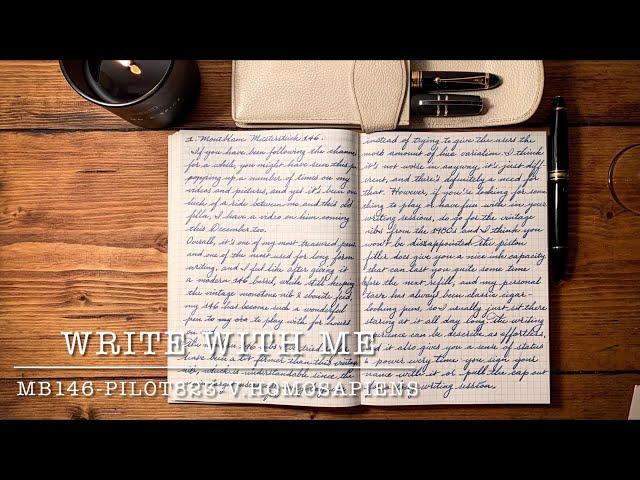 1. Montblanc Meisterstück 146.
If you have been following the channel
for a while, you might have seen this pen
popping up a number of times on my
videos and pictures, and yet it's been one
heck of a ride between me and this old
fella, I have a video on him coming
this December too.
Overall, it's one of my most treasured pens
and one of the most used for long form
writing, and I feel like after giving it
a modern 146 barrel, while still keeping
the vintage monotone nib & ebonite feed,
my 146 has become such a wonderful
pen to my own to play with for hours
on
the
have been a lot firmer than this vintage
nib, which is understandable since the
instead of trying to give the users the
most amount of line variation. I think
it's not worse in anyway, it's just diff-
erent, and there's definitely a need for
that. However, if you're looking for some
thing to play or have fun with in your
writing sessions, do go for the vintage
nibs from the 1980s and I think you
won't be disappointed. the piston
filler does give you a nice ink capacity
that can last you quite some time
before the next refill, and my personal
taste has always been classic cigar-
looking pens, so I usually just sit there
staring at it all day long. the writing
experience can be describe as effortless
and it also gives you a sense of status
& power every time you sign your
name with it or pull the cap out
for a writing session.
WRITE WITH ME
MB146-PILOT823-V.HOMOSAPIENS